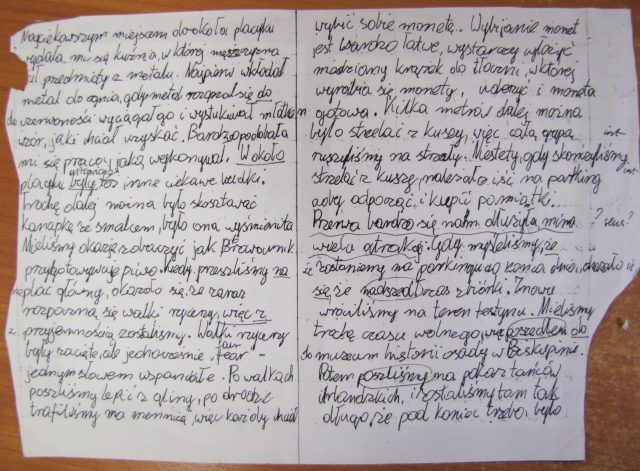 Najciekawszym miejscem dookoła placyku
wydała mi się kuźnia, w której mężczyzna
przedmioty z metalu. Najpierw wkładał
metal do ognia, gdy metal rozgrzał się do
do czerwoności wyciągał go i wystukiwał młotkiem
wzór, jaki chciał uzyskać. Bardzo podobała
mi się praca jaką wykonywał. Wokoło
placyku były też inne ciekawe budki.
Trochę dalej można było skosztować
kanapkę ze smalcem, było ona wyśmienita
Mieliśmy okazję zobaczyć jak Browarnik
przygotowywuje piwo. Kiedy przeszliśmy na
plac główny, okazało się, że zaraz
rozpoczną się walki rycerzy, więc z
przyjemnością zostaliśmy. Walki rycerzy
fair
były zacięte, ale jednocześnie "fear" -
jednym słowem wspaniałe. Po walkach
poszliśmy lepić z gliny, po drodze
trafiliśmy na mennicę, więc każdy chciał
wybić sobie monetę. Wybijanie monet
jest bardzo łatwe, wystarczy włożyć
miedziany krążek do tłoczni, w której
wyrabia się monety, uderzyć i moneta
gotowa. Kilka metrów dalej można
było strzelać z kuszy, więc cała grupa int.
ruszyliśmy na strzały. Niestety, gdy skończyliśmy
strzelać z kuszy, należało iść na parking int.
aby odpocząć, i kupić pamiątki.
Przerwa bardzo się nam dłużyła, mimo
wielu atrakcji. Gdy myśleliśmy, że
że zostaniemy na parkingu do końca dnia, okazało
się, że nadszedł czas zbiórki. Znowu
wróciliśmy na teren festynu. Mieliśmy
trochę czasu wolnego, więc poszedłem do
do muzeum historii osady w Biskupinie.
Potem poszliśmy na pokaz tańców
irlandzkich, i zostaliśmy tam tak
długo, że pod koniec trzeba było